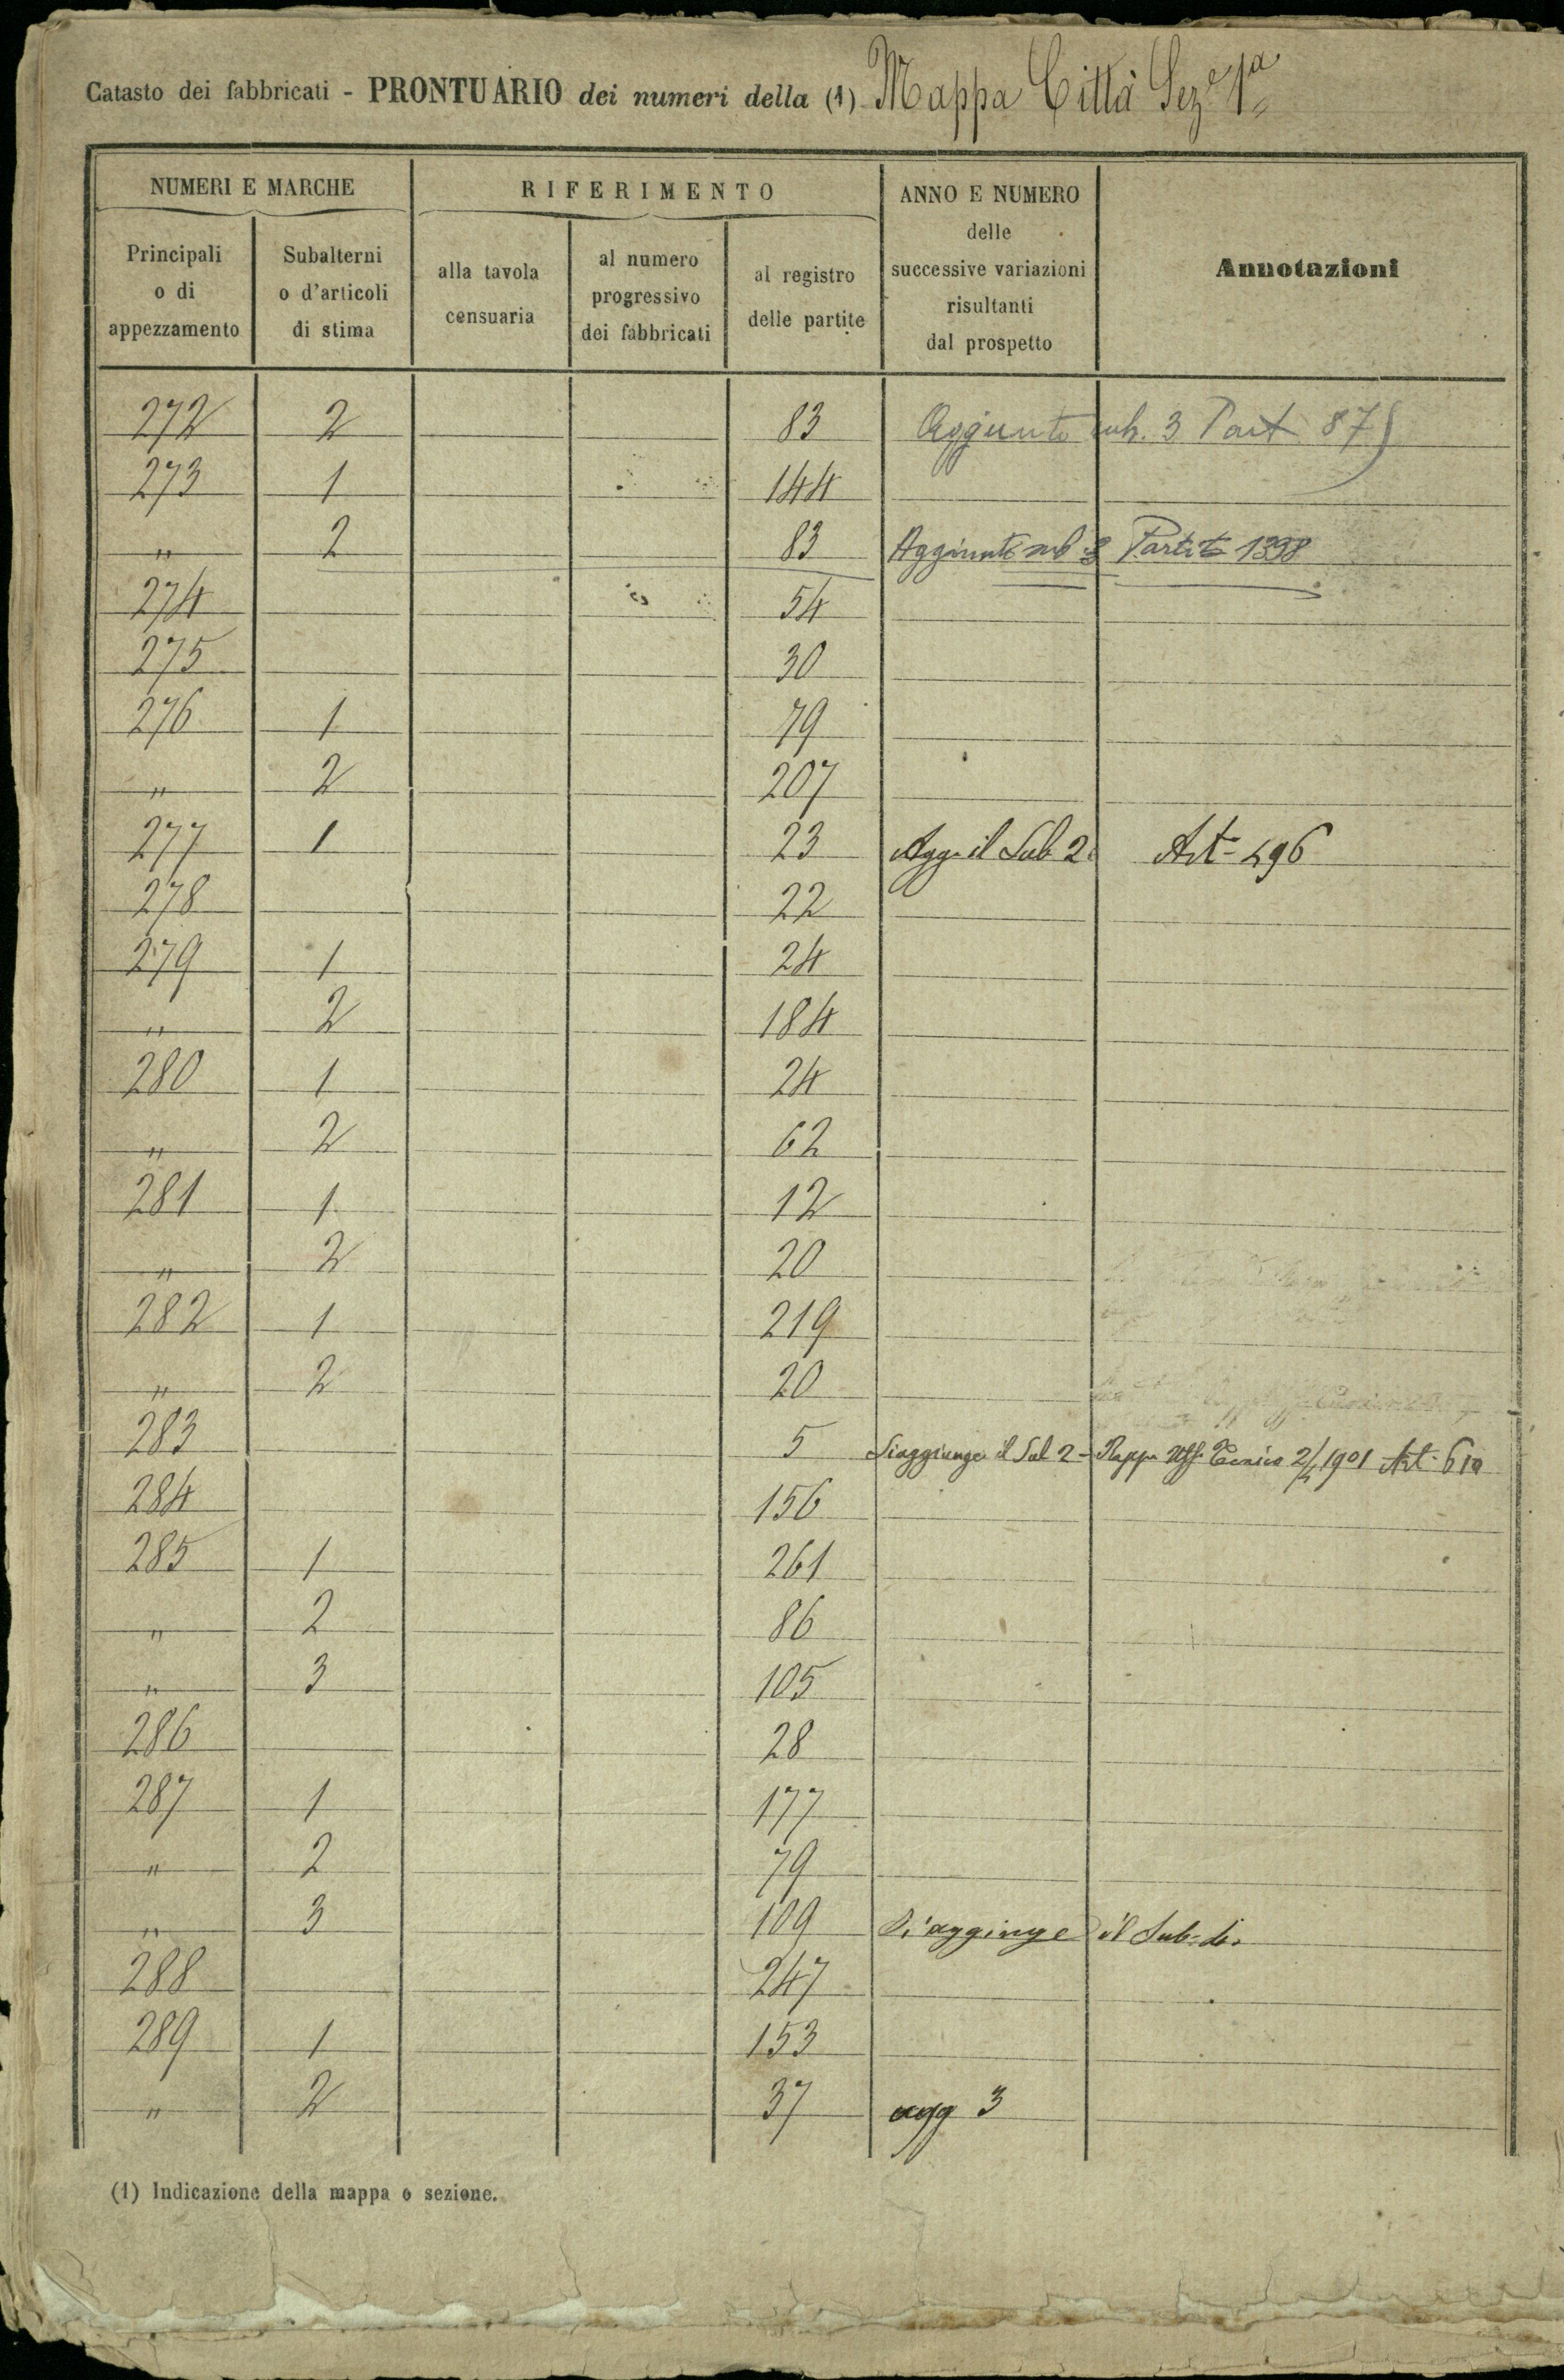 Catasto dei fabbricati - PRONTUARIO dei numeri della (1) Mappa Città Sez.e 1a
NUMERI E MARCHE
RIFERIMENTO
ANNO E NUMERO
delle
successive variazioni
risultanti
dal prospetto
Annotazioni
Principali
o di
appezzamento
Subalterni
o d'articoli
di stima
alla tavola
censuaria
al numero
progressivo
dei fabbricati
al registro
delle partite
272 2 83 Aggiunto sub. 3 Part 87
273 1 144
" 2 83 Aggiunto sub 3 Partita 1398
274 54
275 30
276 1 79
" 2 207
277 1 23 Agg. il Sub 2. Art- 496
278 22
279 1 24
" 2 184
280 1 24
" 2 62
281 1 12
" 2 20
282 1 219
" 2 20
283 5 Si aggiunge il Sub 2- Rapp. Uff. Tecnico 1901 Art- 610
284 156
285 1 261
" 2 86
" 3 105
286 28
287 1 177
" 2 79
" 3 109 Si agginge il Sub-
288 247
289 1 153
" 2 37 agg 3
(1) Indicazione della mappa o sezione.